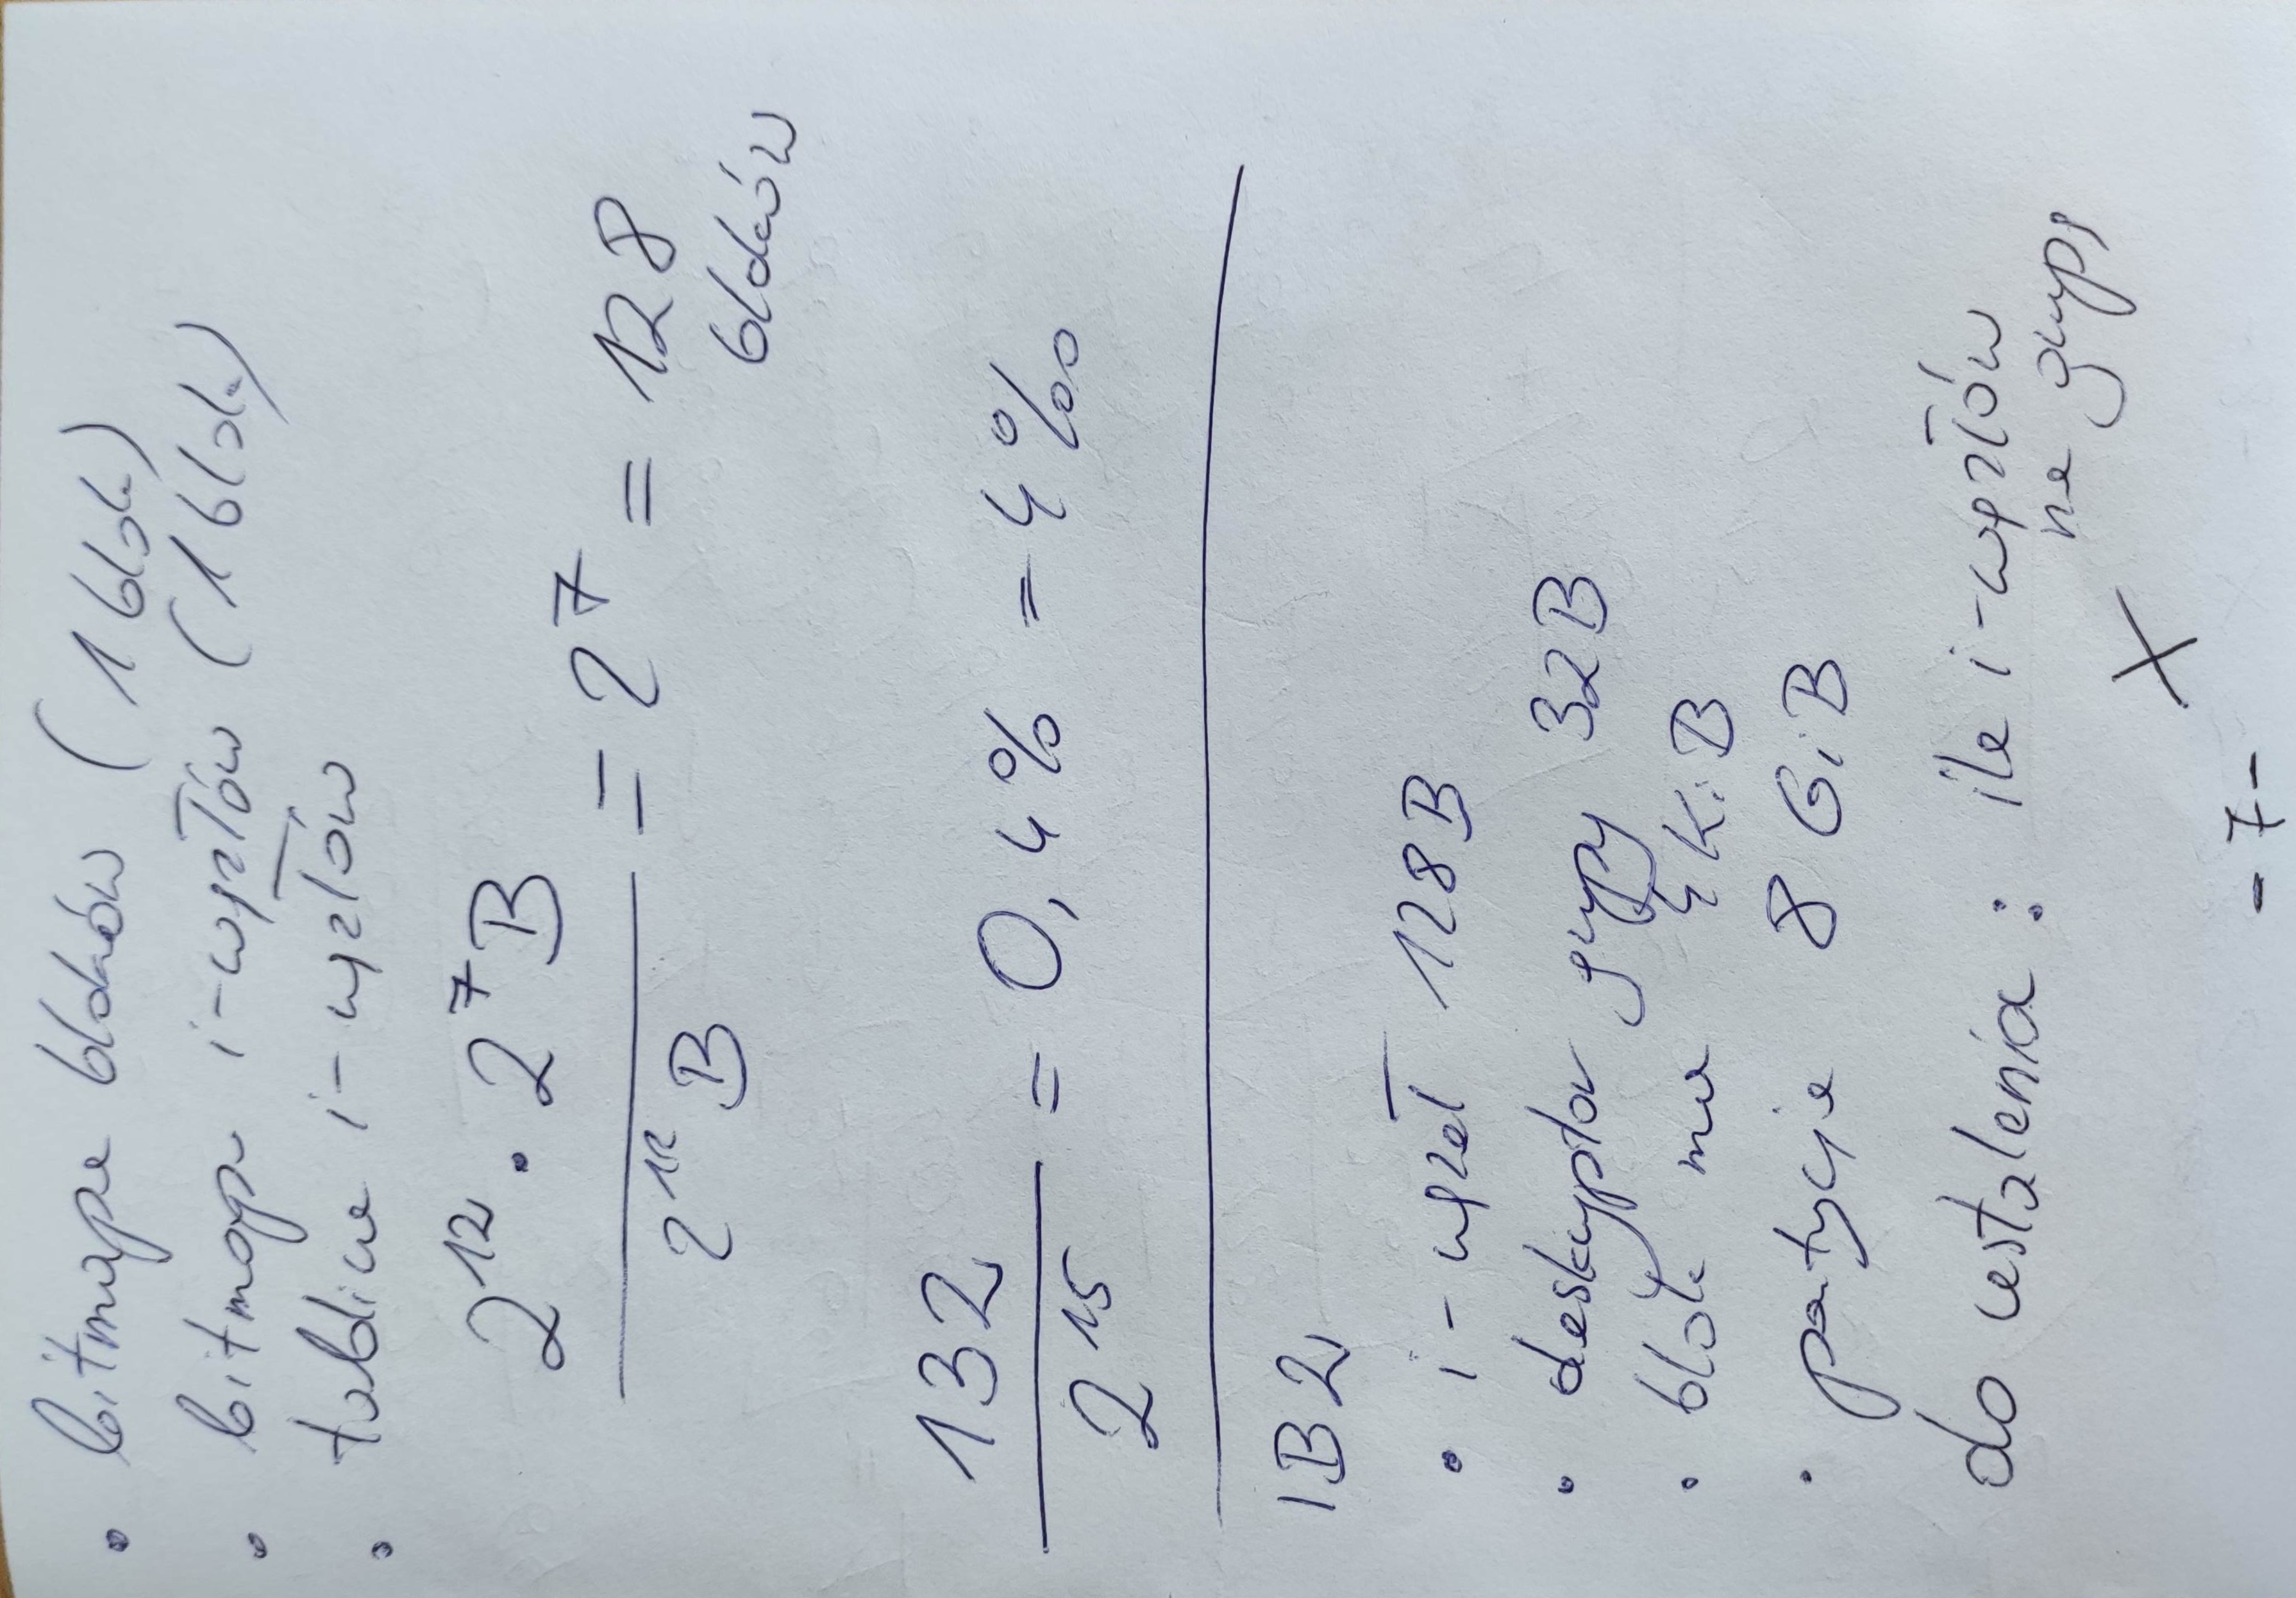 • bitmapa bloków (1 blok)
• bitmapa i-węzłów (1 blok)
• tablica i-węzłów
2¹² · 2⁷B / 2¹²B = 2⁷ = 128 bloków
132 / 2¹⁵ = 0,4% = 4‰
IB2
• i-węzeł 128B
• deskryptor grupy 32B
• blok ma 4KiB
• partycja 8 GiB
do ustalenia: ile i-węzłów
na grupę
X
-7-